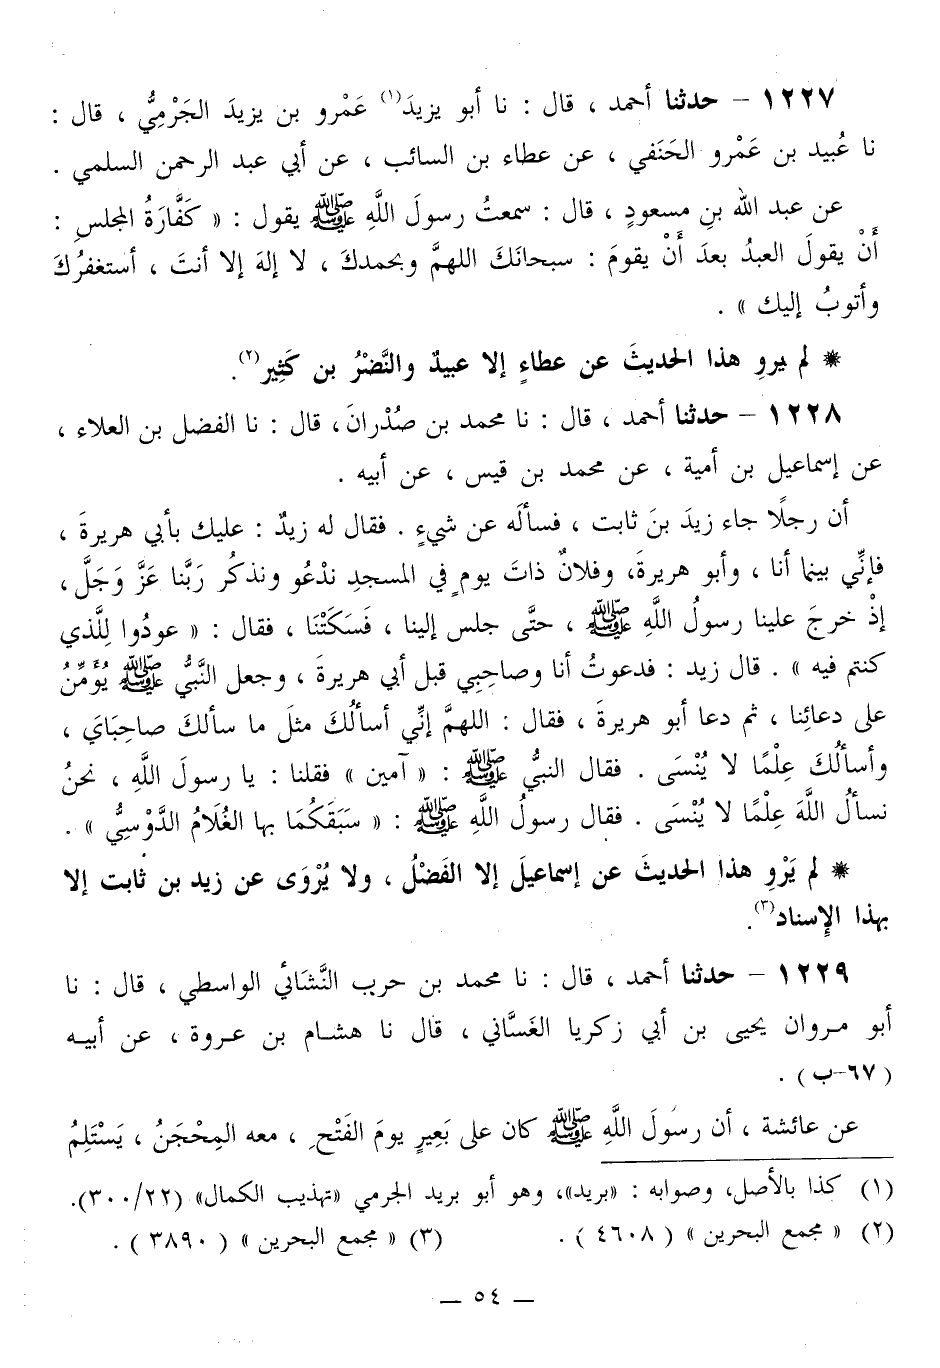 ١٢٢٧ – حدثنا أحمد ، قال : نا أبو يزيدَ(١) عَمْرو بن يزيدَ الجَرْمِيُّ ، قال :
نا عُبيد بن عَمْرو الحَنَفي ، عن عطاء بن السائب ، عن أبي عبد الرحمن السلمي .
عن عبد الله بنِ مسعودٍ ، قال : سمعتُ رسولَ اللَّهِ ﷺ يقول : « كَفَّارَةُ المجلسِ :
أَنْ يقولَ العبدُ بعدَ أَنْ يقومَ : سبحانَكَ اللهمَّ وبحمدكَ ، لا إلهَ إلا أنتَ ، أستغفرُكَ
وأتوبُ إليك » .
※ لم يروِ هذا الحديثَ عن عطاءٍ إلا عبيدٌ والنَّضْرُ بن كَثِير(٢).
١٢٢٨ – حدثنا أحمد ، قال : نا محمد بن صُدْرانَ، قال : نا الفضل بن العلاء ،
عن إسماعيل بن أمية ، عن محمد بن قيس ، عن أبيه .
أن رجلًا جاء زيدَ بنَ ثابت ، فسألَه عن شيءٍ . فقال له زيدٌ : عليك بأبي هريرةَ ،
فإنِّي بينما أنا ، وأبو هريرةَ، وفلانٌ ذاتَ يومٍ في المسجدِ ندْعُو ونذكرُ رَبَّنا عَزَّ وَجَلَّ ،
إذْ خرجَ علينا رسولُ اللَّهِ ﷺ ، حتَّى جلس إلينا ، فَسَكَتْنَا ، فقال : « عودُوا لِلَّذي
كنتم فيه » . قال زيد : فدعوتُ أنا وصاحبِي قبل أبي هريرةَ ، وجعل النَّبيُّ ﷺ يُؤَمِّنُ
على دعائِنا ، ثم دعا أبو هريرةَ ، فقال : اللهمَّ إنِّي أسألُكَ مثلَ ما سألكَ صاحِبَايَ ،
وأسألُكَ عِلْمًا لا يُنْسَى . فقال النبيُّ ﷺ : « آمين » فقلنا : يا رسولَ اللَّهِ ، نحنُ
نسألُ اللَّهَ عِلْمًا لا يُنْسَى . فقال رسولُ اللَّهِ ﷺ : « سَبَقَكُمَا بها الغُلَامُ الدَّوْسِيُّ » .
※ لم يَرْوِ هذا الحديثَ عن إسماعيلَ إلا الفَضْلُ ، ولا يُرْوَى عن زيد بن ثابت إلا
بهذا الإسناد(٣).
١٢٢٩ – حدثنا أحمد ، قال : نا محمد بن حرب النَّشَائي الواسطي ، قال : نا
أبو مروان يحيى بن أبي زكريا الغَسَّاني ، قال نا هشام بن عروة ، عن أبيه
(٦٧-ب) .
عن عائشة ، أن رسولَ اللَّهِ ﷺ كان على بَعِيرٍ يومَ الفَتْحِ ، معه المِحْجَنُ ، يَسْتَلِمُ
(١) كذا بالأصل، وصوابه : «بريد»، وهو أبو بريد الجرمي «تهذيب الكمال» (٣٠٠/٢٢).
(٢) « مجمع البحرين » ( ٤٦٠٨ ) . (٣) « مجمع البحرين » ( ٣٨٩٠ ) .
— ٥٤ —